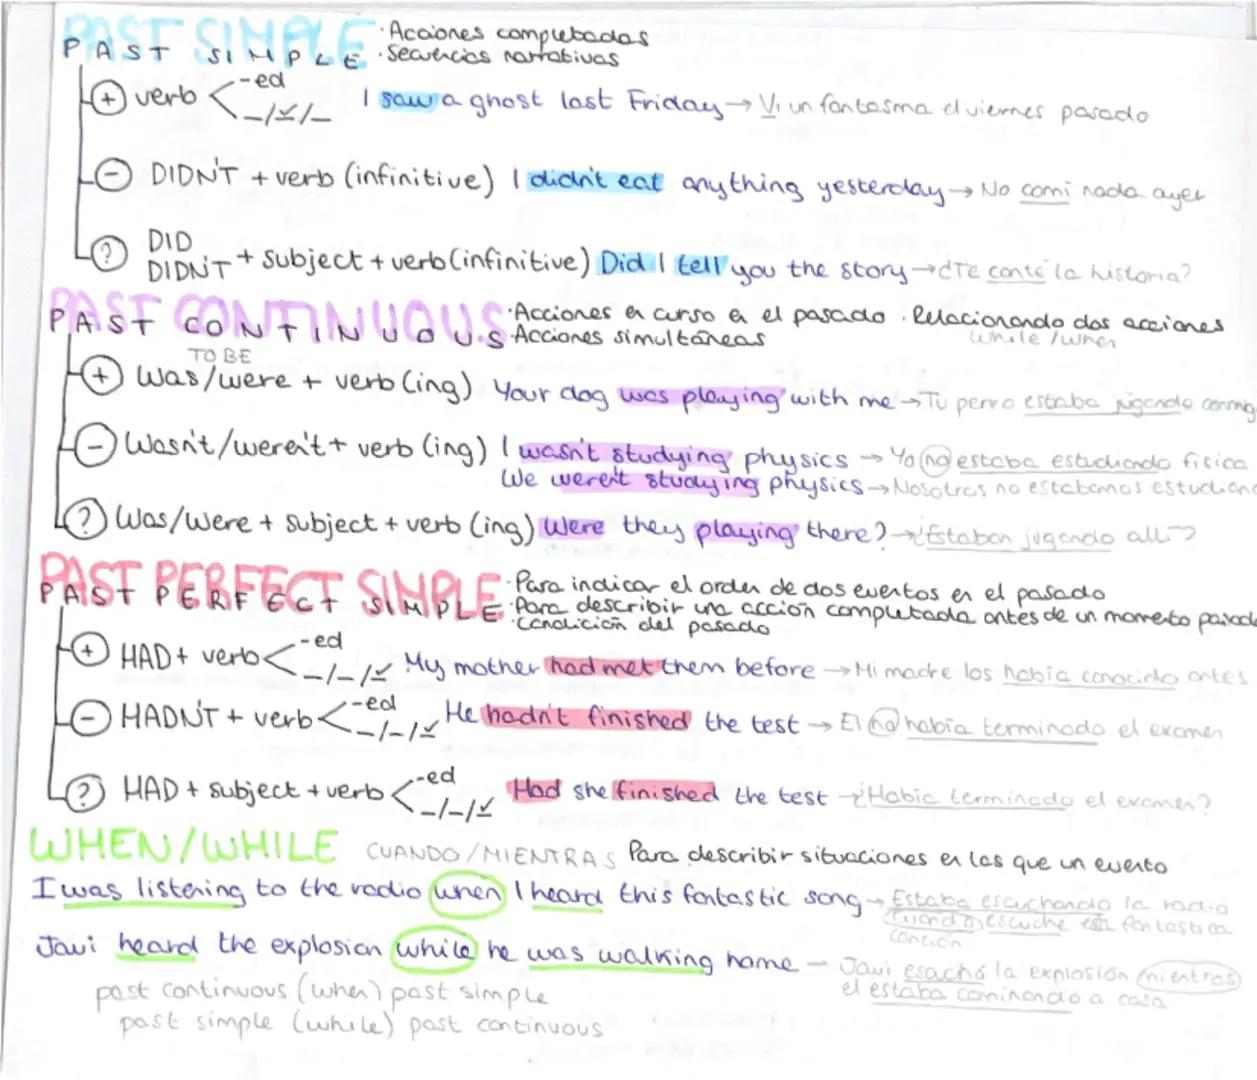 PAST SIMPLE · Acciones completadas
PAST SIMPLE · Secuencias narrativas
(+) verb < -ed
_/✓/_ I saw a ghost last Friday → Vi un fantasma el viernes pasado
(-) DIDN'T + verb (infinitive) I didn't eat anything yesterday → No comí nada ayer
(?) DID
DIDN'T + subject + verb (infinitive) Did I tell you the story → ¿Te conté la historia?
PAST CONTINUOUS · Acciones en curso en el pasado · Relacionando dos acciones
PAST CONTINUOUS · Acciones simultáneas while / when
TO BE
(+) Was/were + verb (ing) Your dog was playing with me → Tu perro estaba jugando conmig
(-) Wasn't/weren't + verb (ing) I wasn't studying physics → Yo no estaba estudiando física
We weren't studying physics → Nosotros no estabamos estudian
(?) Was/Were + subject + verb (ing) Were they playing there? → ¿Estaban jugando allí?
PAST PERFECT SIMPLE · Para indicar el orden de dos eventos en el pasado
PAST PERFECT SIMPLE · Para describir una acción completada antes de un momento pasado
· Condición del pasado
(+) HAD + verb < -ed
_/_/✓ My mother had met them before → Mi madre los había conocido antes
(-) HADN'T + verb < -ed
_/_/✓ He hadn't finished the test → El no había terminado el examen
(?) HAD + subject + verb < -ed
_/_/✓ Had she finished the test → ¿Había terminado el examen?
WHEN/WHILE CUANDO/MIENTRAS Para describir situaciones en las que un evento
I was listening to the radio when I heard this fantastic song → Estaba escuchando la radio
cuando escuche esta fantastica
canción
Javi heard the explosion while he was walking home – Javi escachó la explosión mientras
el estaba caminando a casa
past continuous (when) past simple
past simple (while) past continuous